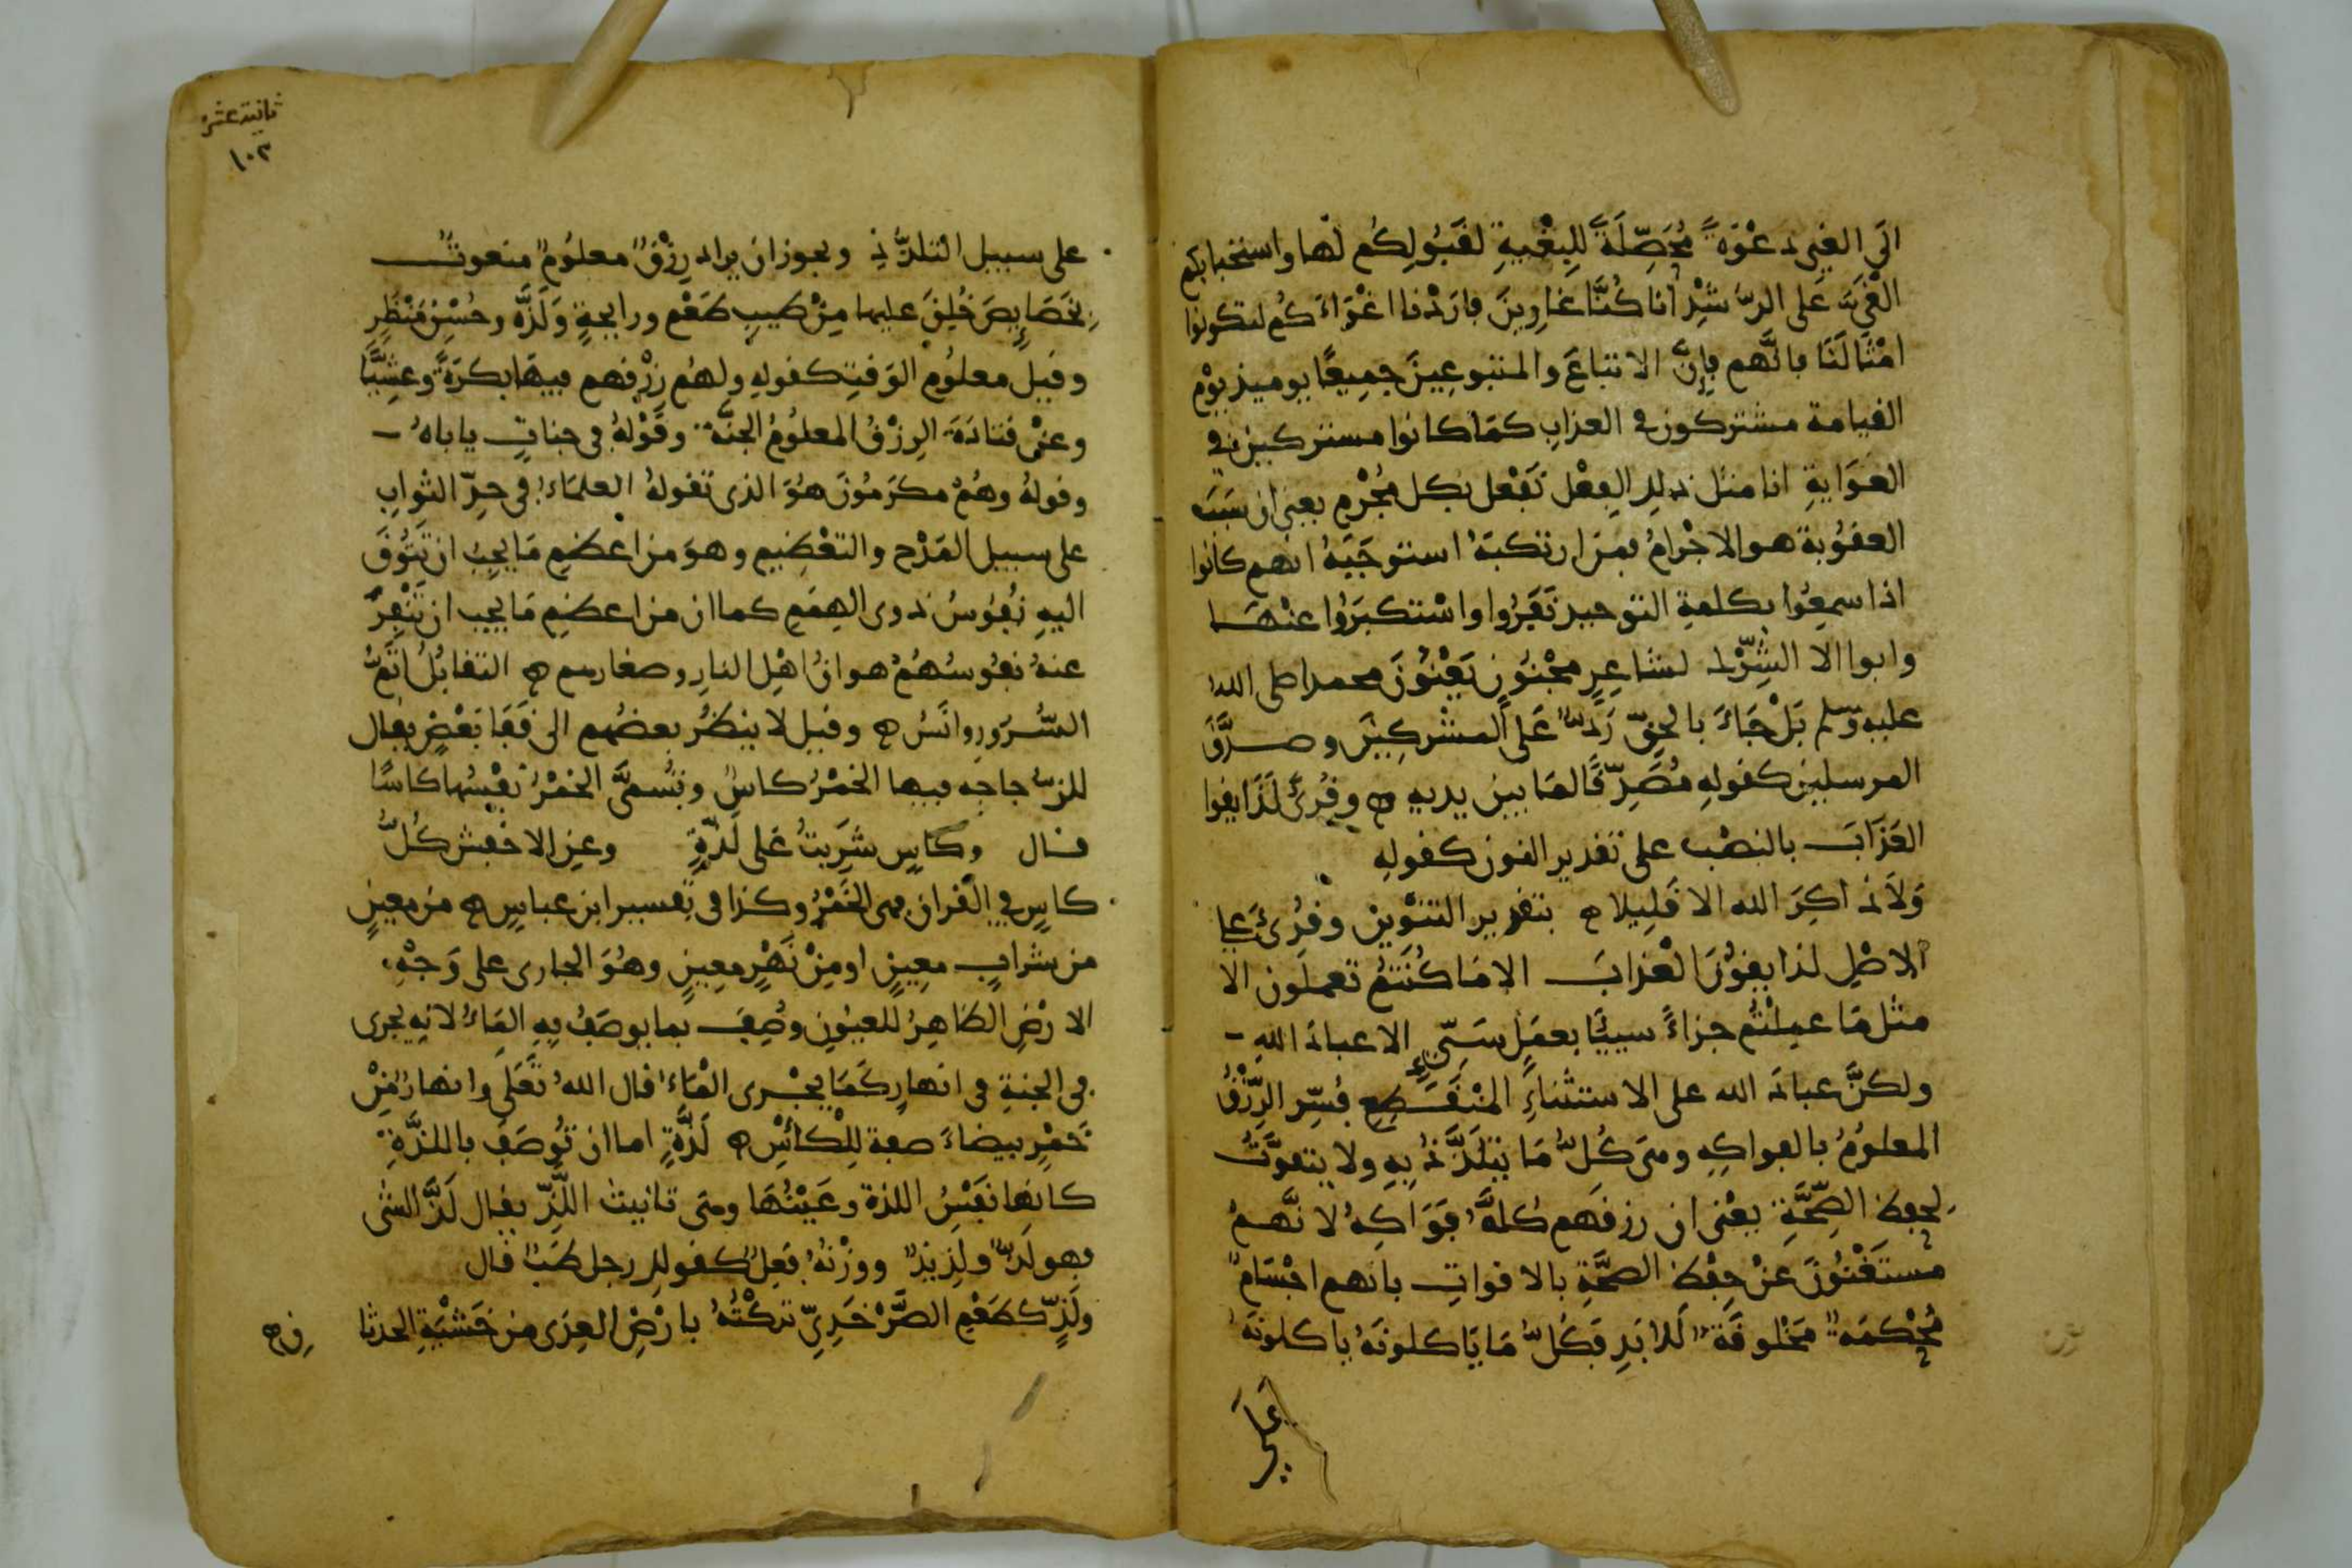 الى الغي دعْوَةً مُحَصِّلَةً لِلبُغْيةِ لقَبُولِكُم لَها واستحبابكم
الغَيَّ عَلى الرُّشْدِ أنا كُنَّا غاوِينَ فارَدْنا اغْوَاءَكُم لتكونوا
امْثالَنَا فانَّهم فإِنَّ الاتباعَ والمتبوعِينَ جمِيعًا يوميذ يوْم
القيامة مشتركون في العذابِ كمَا كانوا مشتركين في
الغَوَايةِ انا مثل ذلك الفِعْل نَفْعل بكل مُجْرِم يعني ان سَبَبَ
العقوُبة هو الاجْرامُ فمَن ارتكبَهُ استوجَبَهُ انهم كانوا
اذا سمِعُوا بكلمةِ التوحيد نَفَرُوا واسْتكبَرُوا عنْهَا
وابوا الا الشِّرْك لشاعِرٍ مجْنُونٍ يَعْنُوُنَ محمدا صلى الله
عليه وسلم بَلْ جَاءَ بالحَقّ رَدٌّ عَلى المشركِينَ وصدَّقَ
المرسلين كقولهِ مُصَدِّقًا لما بين يديه ه وقُرئَ لَذَايقوا
العَذَابَ بالنصْب على تقدير النون كقولهِ
وَلاَ ذَاكِرَ الله الا قَلِيلا ه بتقدير التنْوين وقُرئَ عَلى
الاصْلِ لذايقوُنَ العْذابَ الا مَا كُنْتمُ تعملون الا
مثل مَا عمِلْتُم جزاءً سييًا بعمَلٍ سَيّئٍ الا عبادَ اللهِ -
ولكنَّ عبادَ الله على الاستثناءِ المنْقَطِعِ فُسِّر الرِّزْقُ
المعلوُمُ بالفواكِهِ ومىَ كُلُّ مَا يُتَلَذَّذُ بِهِ ولا يتقوَّتُ
لحِفظِ الصِّحَّةِ يعْني ان رزقَهم كُلَّهُ فوَاكِهُ لانَّهمُ
مستَغْنُوُنَ عَنْ حِفْظِ الصحَّةِ بالاقواتِ بانهم اجْسَامٌ
مُحْكمَهٌ مَخْلوقَةٌ لَلابَدِ فَكُلُّ مَا يَاكلونَهُ ياكلونَهُ
على
ثانية عشر
١٠٢
على سبيل التلذُّذِ ويجوز ان يراد رِزْقٌ معلوُمٌ منعوتٌ
بخَصَايِصَ خُلِقَ عليها مِنْ طيبِ طَعْم ورايحةٍ وَلَذَّه وحُسْنِ مَنْظَرٍ
وقيل معلوُم الوَقتِ كقولهِ ولهُم رِزْقهم فيهَا بكرَةً وعشِيًّا
وعنْ قتادَةَ الرِزْقُ المعلوُمُ الجنَّه وقَوْلهُ في جناتٍ ياباهُ -
وقولهُ وهُمْ مكرَمُوُنَ هوَ الذي تقولهُ العلمَاءُ في حدِّ الثوابِ
على سبيل المَدْح والتعْظيم وهوَ من اعظمِ مَا يجبُ ان تَتُوقَ
اليهِ نفُوسُ ذوى الهِمَمِ كما ان من اعظمِ مَا يجب ان تَنْفِرَ
عنهُ نفوسُهُمْ هوانُ اهْلِ النارِ وصغارهم ه التقابُلُ اتَمُّ
السُّرُورِ وانَسُ ه وقيل لا ينظُرُ بعضُهم الى قَفَا بَعْضٍ يقال
للزُّجاجه فيها الخمْرُ كاسٌ وتُسمىَّ الخمْرُ نفْسُها كاسًا
قال وكاسٍ شرِبتُ عَلى لَذَّةٍ وعنِ الاخفش كُلُّ
كاسٍ في القرانِ فهي الخَمْرُ وكذا في تفسير ابن عباسٍ ه من معينٍ
من شرابٍ معِينٍ او مِنْ نَهْرٍ معِينٍ وهُوَ الجارى على وَجْهِ
الارْضِ الظاهِرُ للعيُونِ وصِفَ بما يوصَفُ بهِ المَاءُ لانه يجرى
في الجنةِ في انهارِ كَمَا يجْرى المَاءُ قال اللهُ تَعَلى وانهارٌ مِنْ
خَمْرٍ بيضاءَ صفة لِلْكاْسِ ه لَذَّةٍ اما ان تُوصَفَ باللذَّةِ
كانها نَفْسُ اللذة وعَيْنُهَا ومىَ تانيث اللَّذِّ يقال لَذَّ الشى
فهو لَذٌّ ولَذِيذٌ ووزْنهُ فعِلٌ كقولك رجل طَبٌّ قال
ولَذٍّ كطَعْمِ الصَّرْخَدِيّ تركْتُهُ بارْضِ العِدَى من خَشْيَةِ الحدثا نِ ه